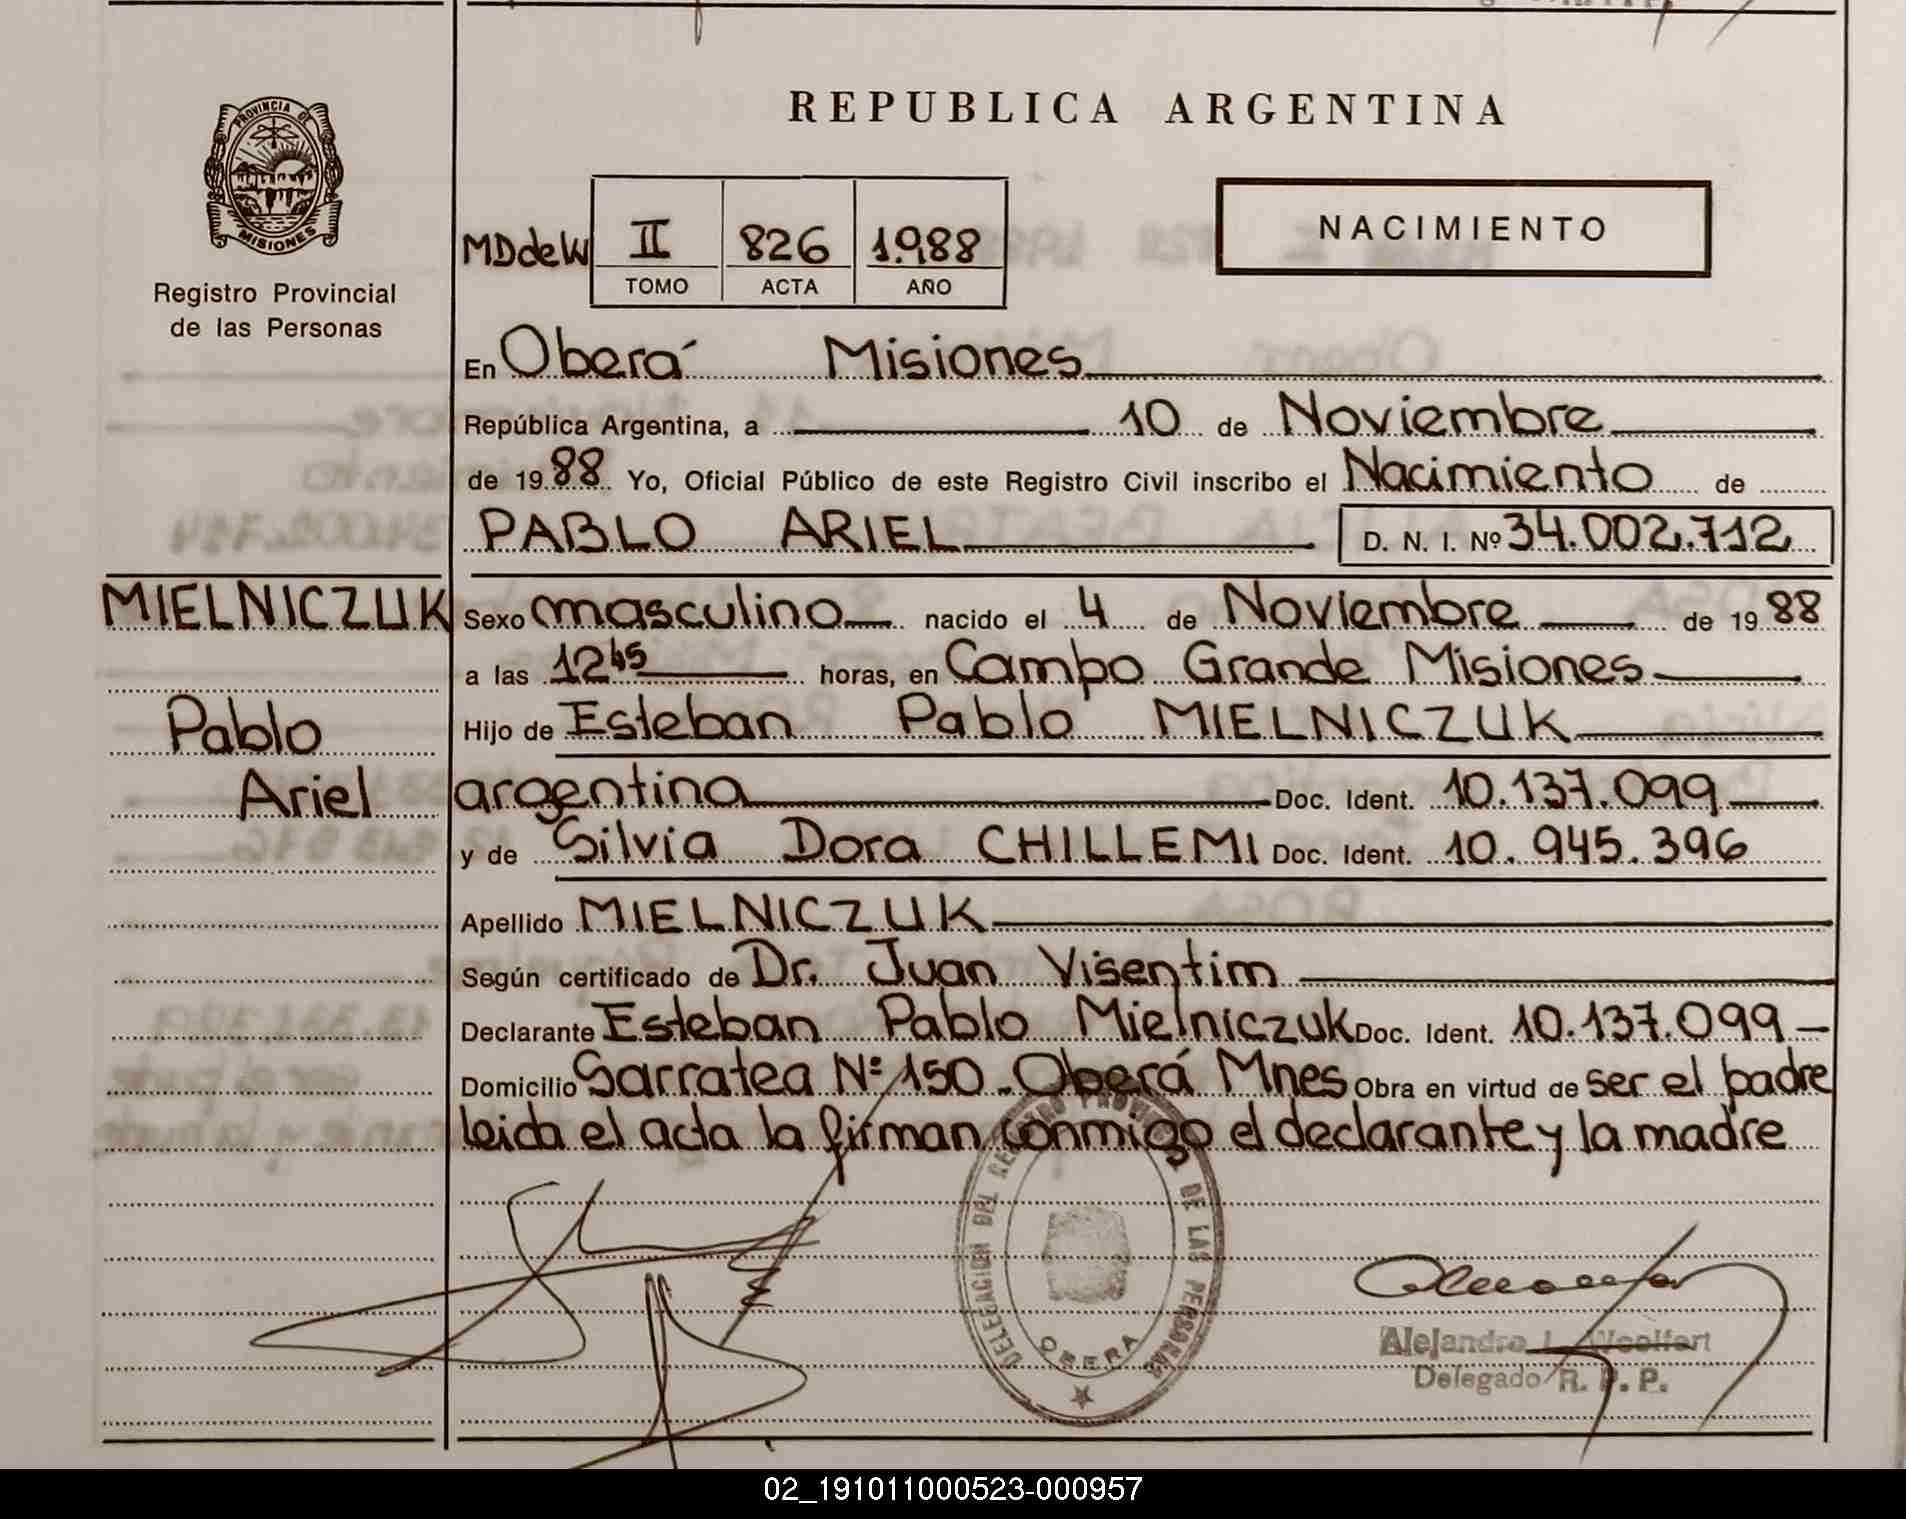 REPUBLICA ARGENTINA
PROVINCIA DE MISIONES
Registro Provincial
de las Personas
MDdeW
II 826 1.988
TOMO ACTA AÑO
NACIMIENTO
En Oberá Misiones
República Argentina, a 10 de Noviembre
de 1988 Yo, Oficial Público de este Registro Civil inscribo el Nacimiento de
PABLO ARIEL D. N. I. Nº 34.002.712
MIELNICZUK
Pablo
Ariel
Sexo masculino nacido el 4 de Noviembre de 1988
a las 12 45 horas, en Campo Grande Misiones
Hijo de Esteban Pablo MIELNICZUK
argentina Doc. Ident. 10.137.099
y de Silvia Dora CHILLEMI Doc. Ident. 10.945.396
Apellido MIELNICZUK
Según certificado de Dr. Juan Visentim
Declarante Esteban Pablo Mielniczuk Doc. Ident. 10.137.099
Domicilio Sarratea Nº 150 - Oberá Mnes Obra en virtud de ser el padre
leida el acta la firman conmigo el declarante y la madre
DELEGACION DEL REGISTRO PROVINCIAL DE LAS PERSONAS
OBERA
Alejandro L. Woolfert
Delegado R. P. P.
02_191011000523-000957